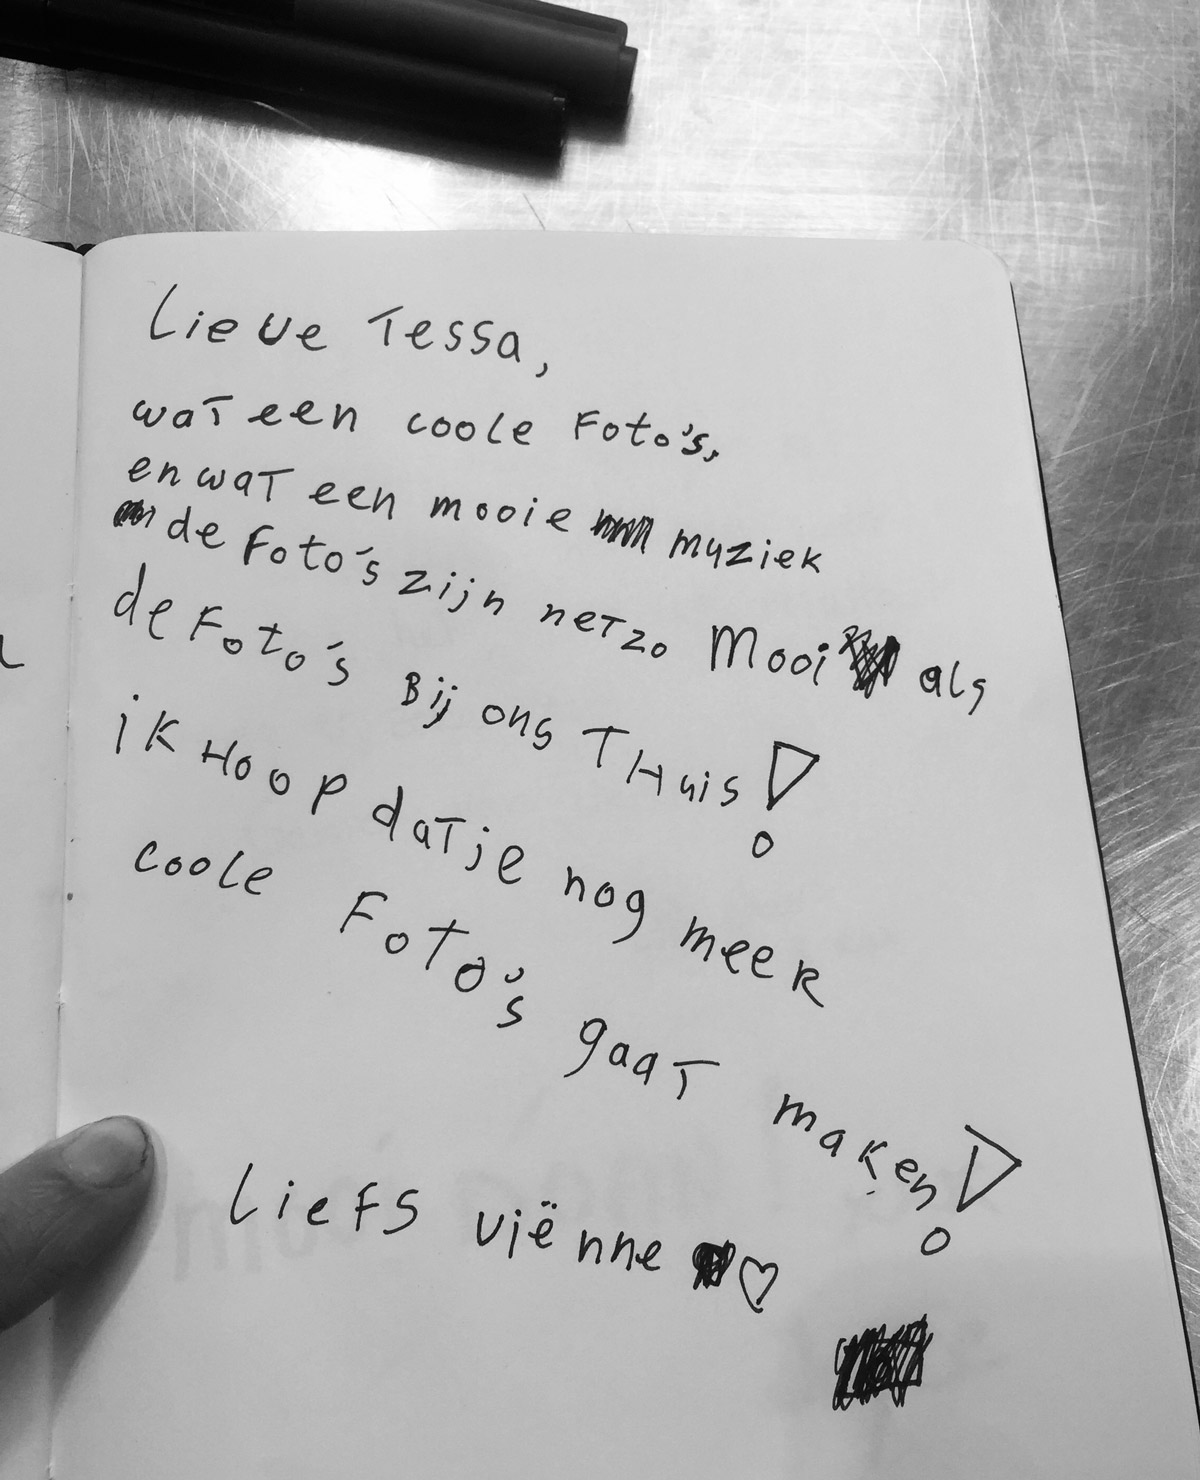 Lieve Tessa,
wat een coole Foto's,
en wat een mooie muziek
de Foto's zijn netzo Mooi als
de Foto's Bij ons THuis!
ik Hoop dat je nog meer
coole Foto's gaat maken!
Liefs viënne ♡